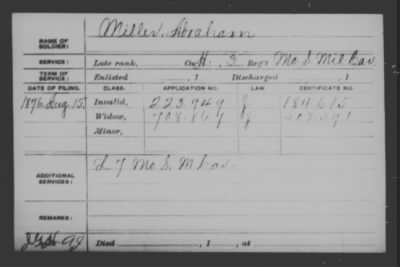 Miller, Abraham
NAME OF SOLDIER:
SERVICE: Late rank, Co. H, 5 Reg't Mo S Mil Cav
TERM OF SERVICE: Enlisted , 1 Discharged , 1
DATE OF FILING. CLASS. APPLICATION NO. LAW CERTIFICATE NO.
1876 Aug 15 Invalid, 223949 184615
Widow, 708.867
Minor,
ADDITIONAL SERVICES: L 7 Mo S. M Cav.
REMARKS:
Died , 1 , at